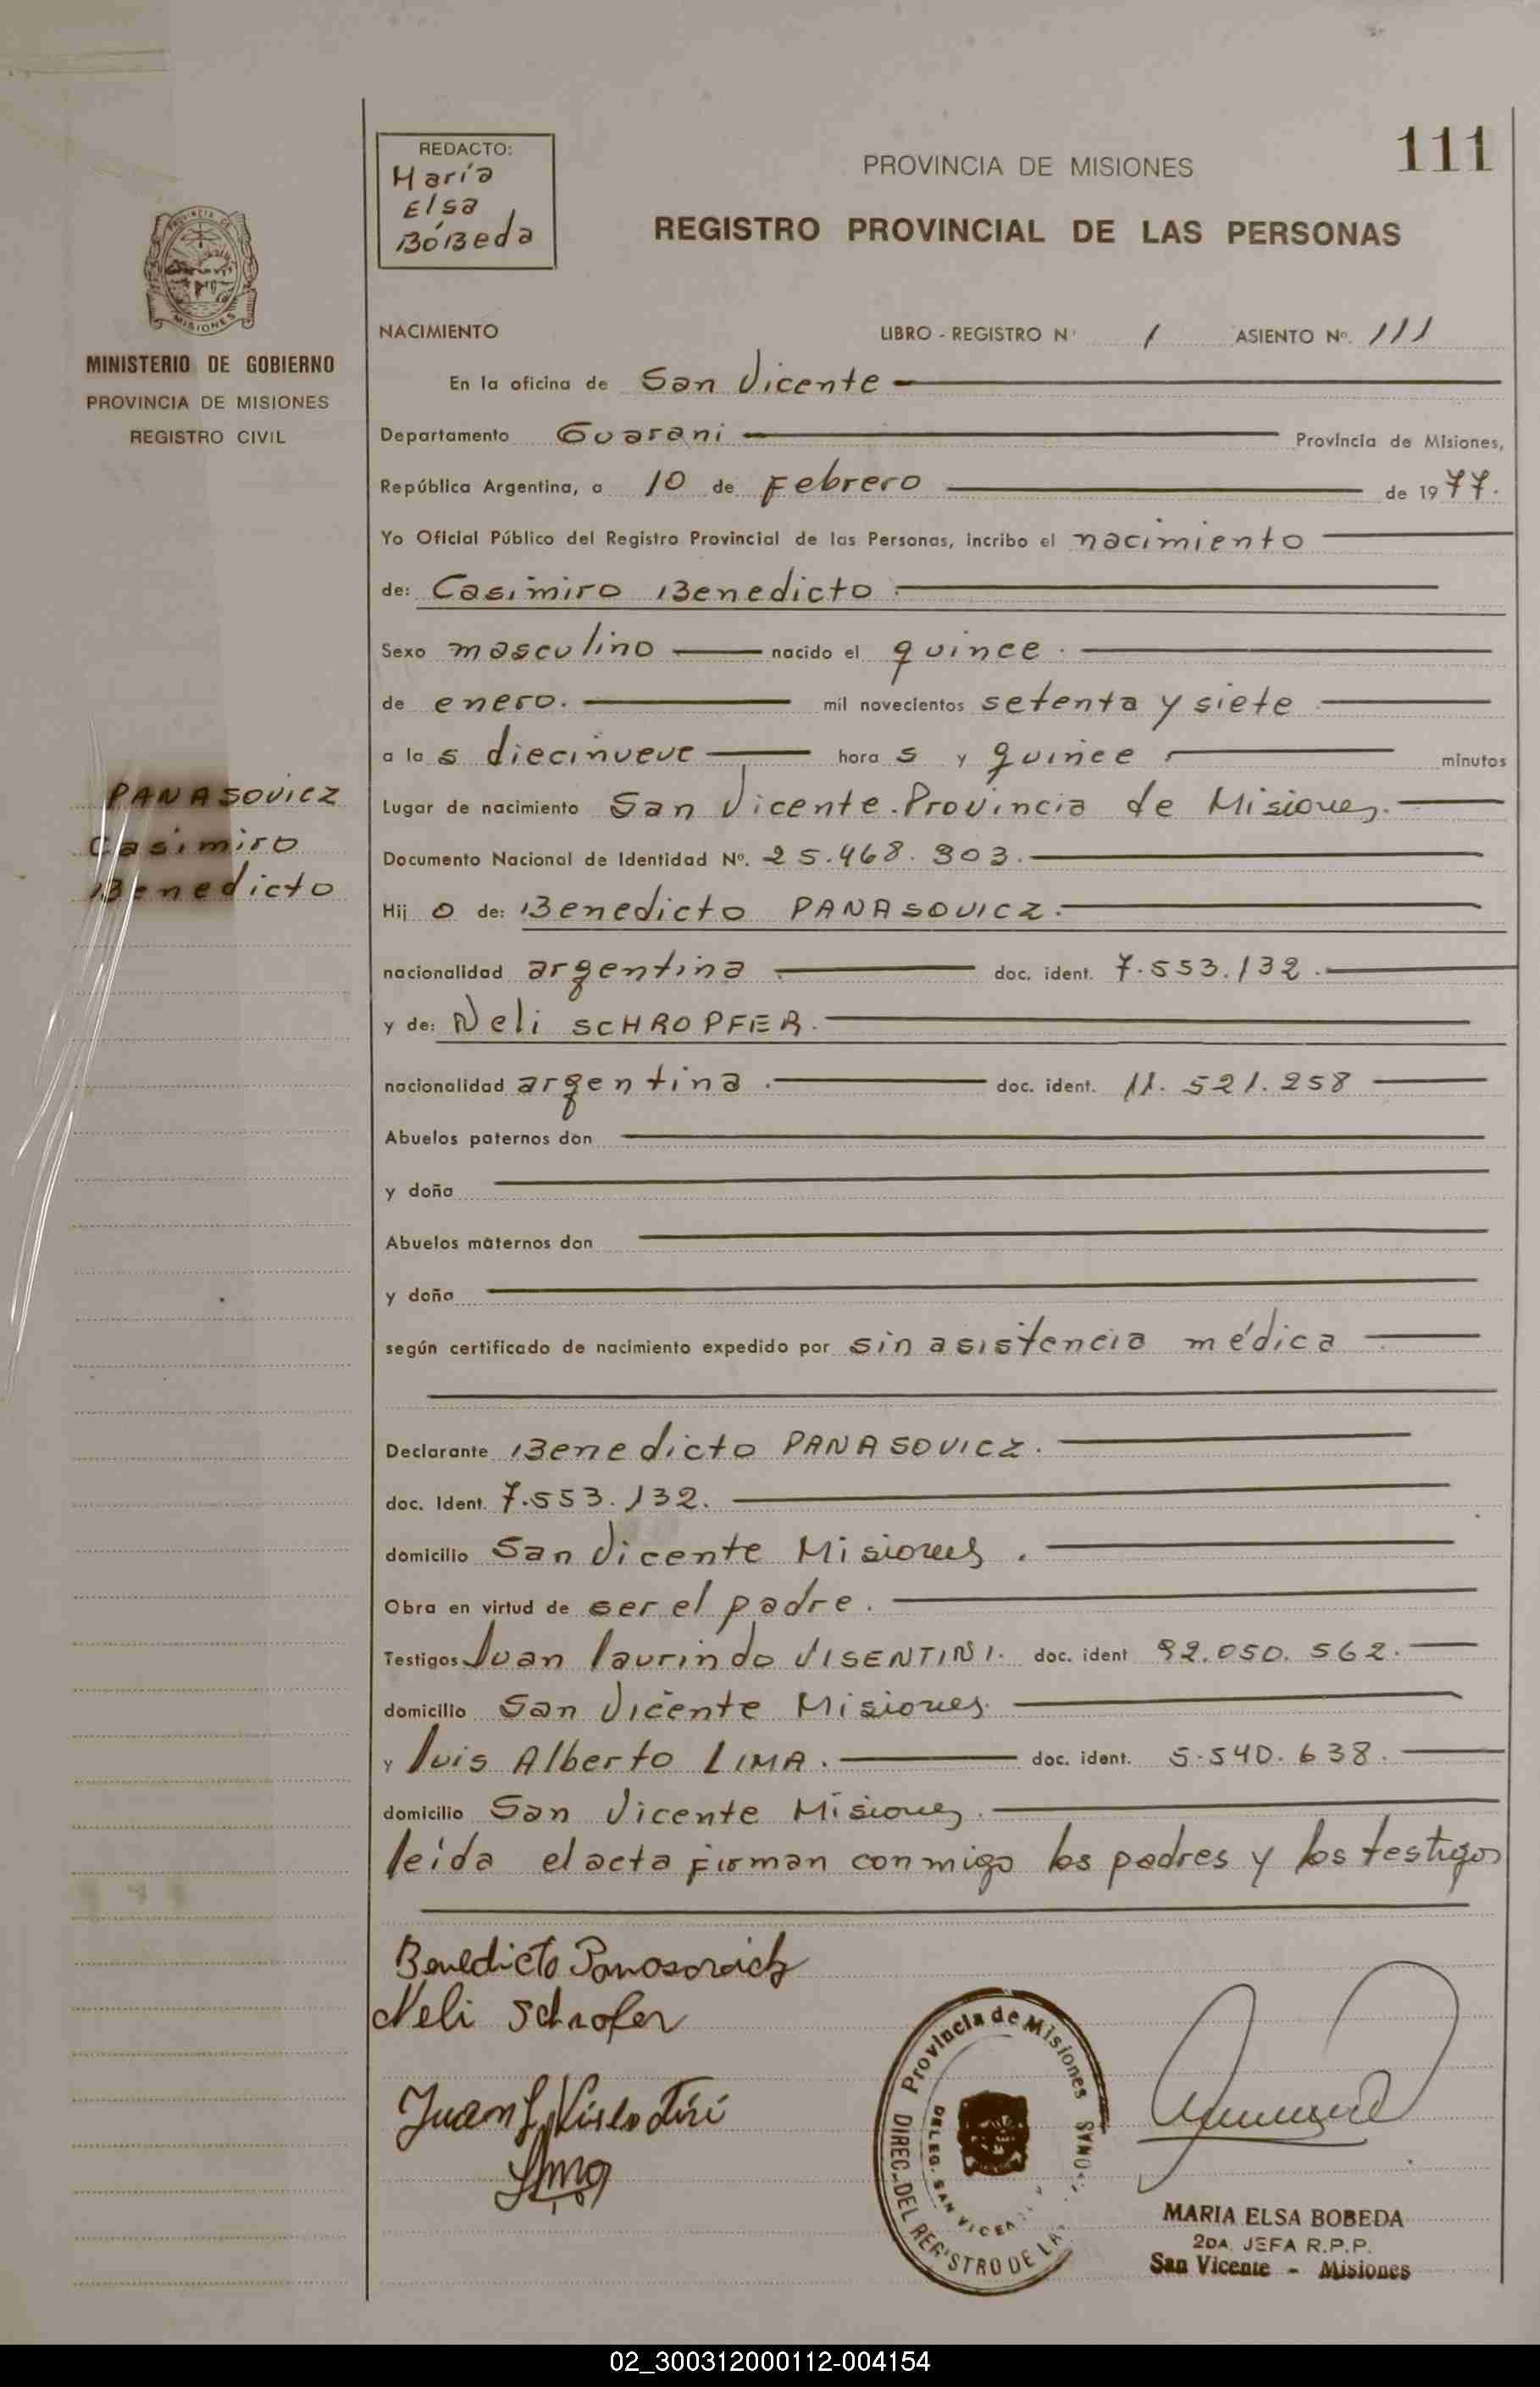 REDACTO:
María
Elsa
BóBeda
PROVINCIA DE MISIONES
111
REGISTRO PROVINCIAL DE LAS PERSONAS
MISIONES
MINISTERIO DE GOBIERNO
PROVINCIA DE MISIONES
REGISTRO CIVIL
NACIMIENTO LIBRO - REGISTRO Nº 1 ASIENTO Nº. 111
En la oficina de San Vicente
Departamento Guarani Provincia de Misiones,
República Argentina, a 10 de Febrero de 1977.
Yo Oficial Público del Registro Provincial de las Personas, incribo el nacimiento
de: Casimiro Benedicto
Sexo masculino nacido el quince.
de enero. mil novecientos setenta y siete
a las diecinueve horas y quince minutos
PANASOVICZ
Casimiro
Benedicto
Lugar de nacimiento San Vicente. Provincia de Misiones.
Documento Nacional de Identidad Nº. 25.468.903.
Hijo de: Benedicto PANASOVICZ.
nacionalidad argentina doc. ident. 7.553.132.
y de: Neli SCHROPFER.
nacionalidad argentina. doc. ident. 11.521.258
Abuelos paternos don
y doña
Abuelos maternos don
y doña
según certificado de nacimiento expedido por sin asistencia médica
Declarante Benedicto PANASOVICZ.
doc. Ident. 7.553.132.
domicilio San Vicente Misiones.
Obra en virtud de ser el padre.
Testigos Juan laurindo VISENTINI. doc. ident 92.050.562.
domicilio San Vicente Misiones.
y luis Alberto LIMA. doc. ident. 5.540.638.
domicilio San Vicente Misiones.
leída el acta firman conmigo los padres y los testigos
Benedicto Panasovich
Neli Schrofer
Juan L. Visentini
Lima
Provincia de Misiones
DIREC. DEL REGISTRO DE LA
DELEG. SAN VICEN
MARIA ELSA BOBEDA
2DA. JEFA R.P.P.
San Vicente - Misiones
02_300312000112-004154